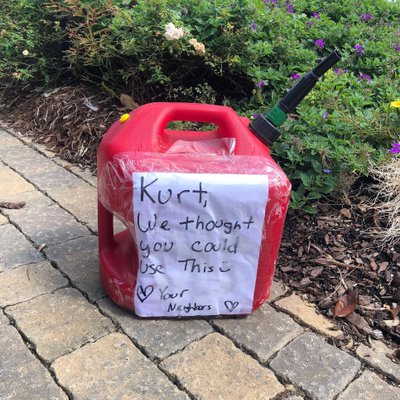 Kurt,
We thought
you could
use This
Your
Neighbors